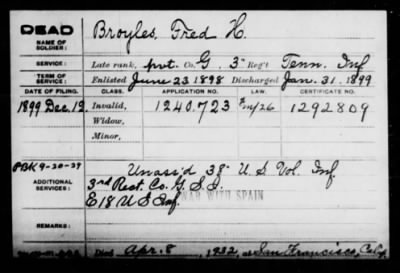 DEAD
NAME OF SOLDIER: Broyles, Fred H.
SERVICE: Late rank, pvt. Co. G, 3" Reg't Tenn. Inf
TERM OF SERVICE: Enlisted June 23 1898 Discharged Jan. 31. 1899
DATE OF FILING. CLASS. APPLICATION NO. LAW. CERTIFICATE NO.
1899 Dec. 12. Invalid, 1240.723 1292809
Widow,
Minor,
Unass'd 38" U.S. Vol. Inf
ADDITIONAL SERVICES: 3rd Rect. Co. G.S.I.
WAR WITH SPAIN
E 18 U S Inf
REMARKS:
Died Apr. 8, 1932, at San Francisco, Calif.